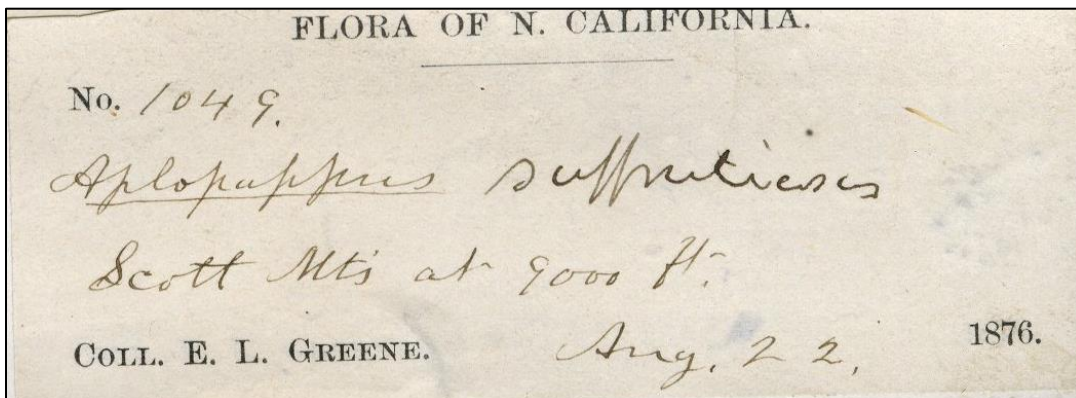 FLORA OF N. CALIFORNIA.
No. 1049.
Aplopappus suffruticosus
Scott Mts at 9000 ft.
COLL. E. L. GREENE. Aug, 22, 1876.